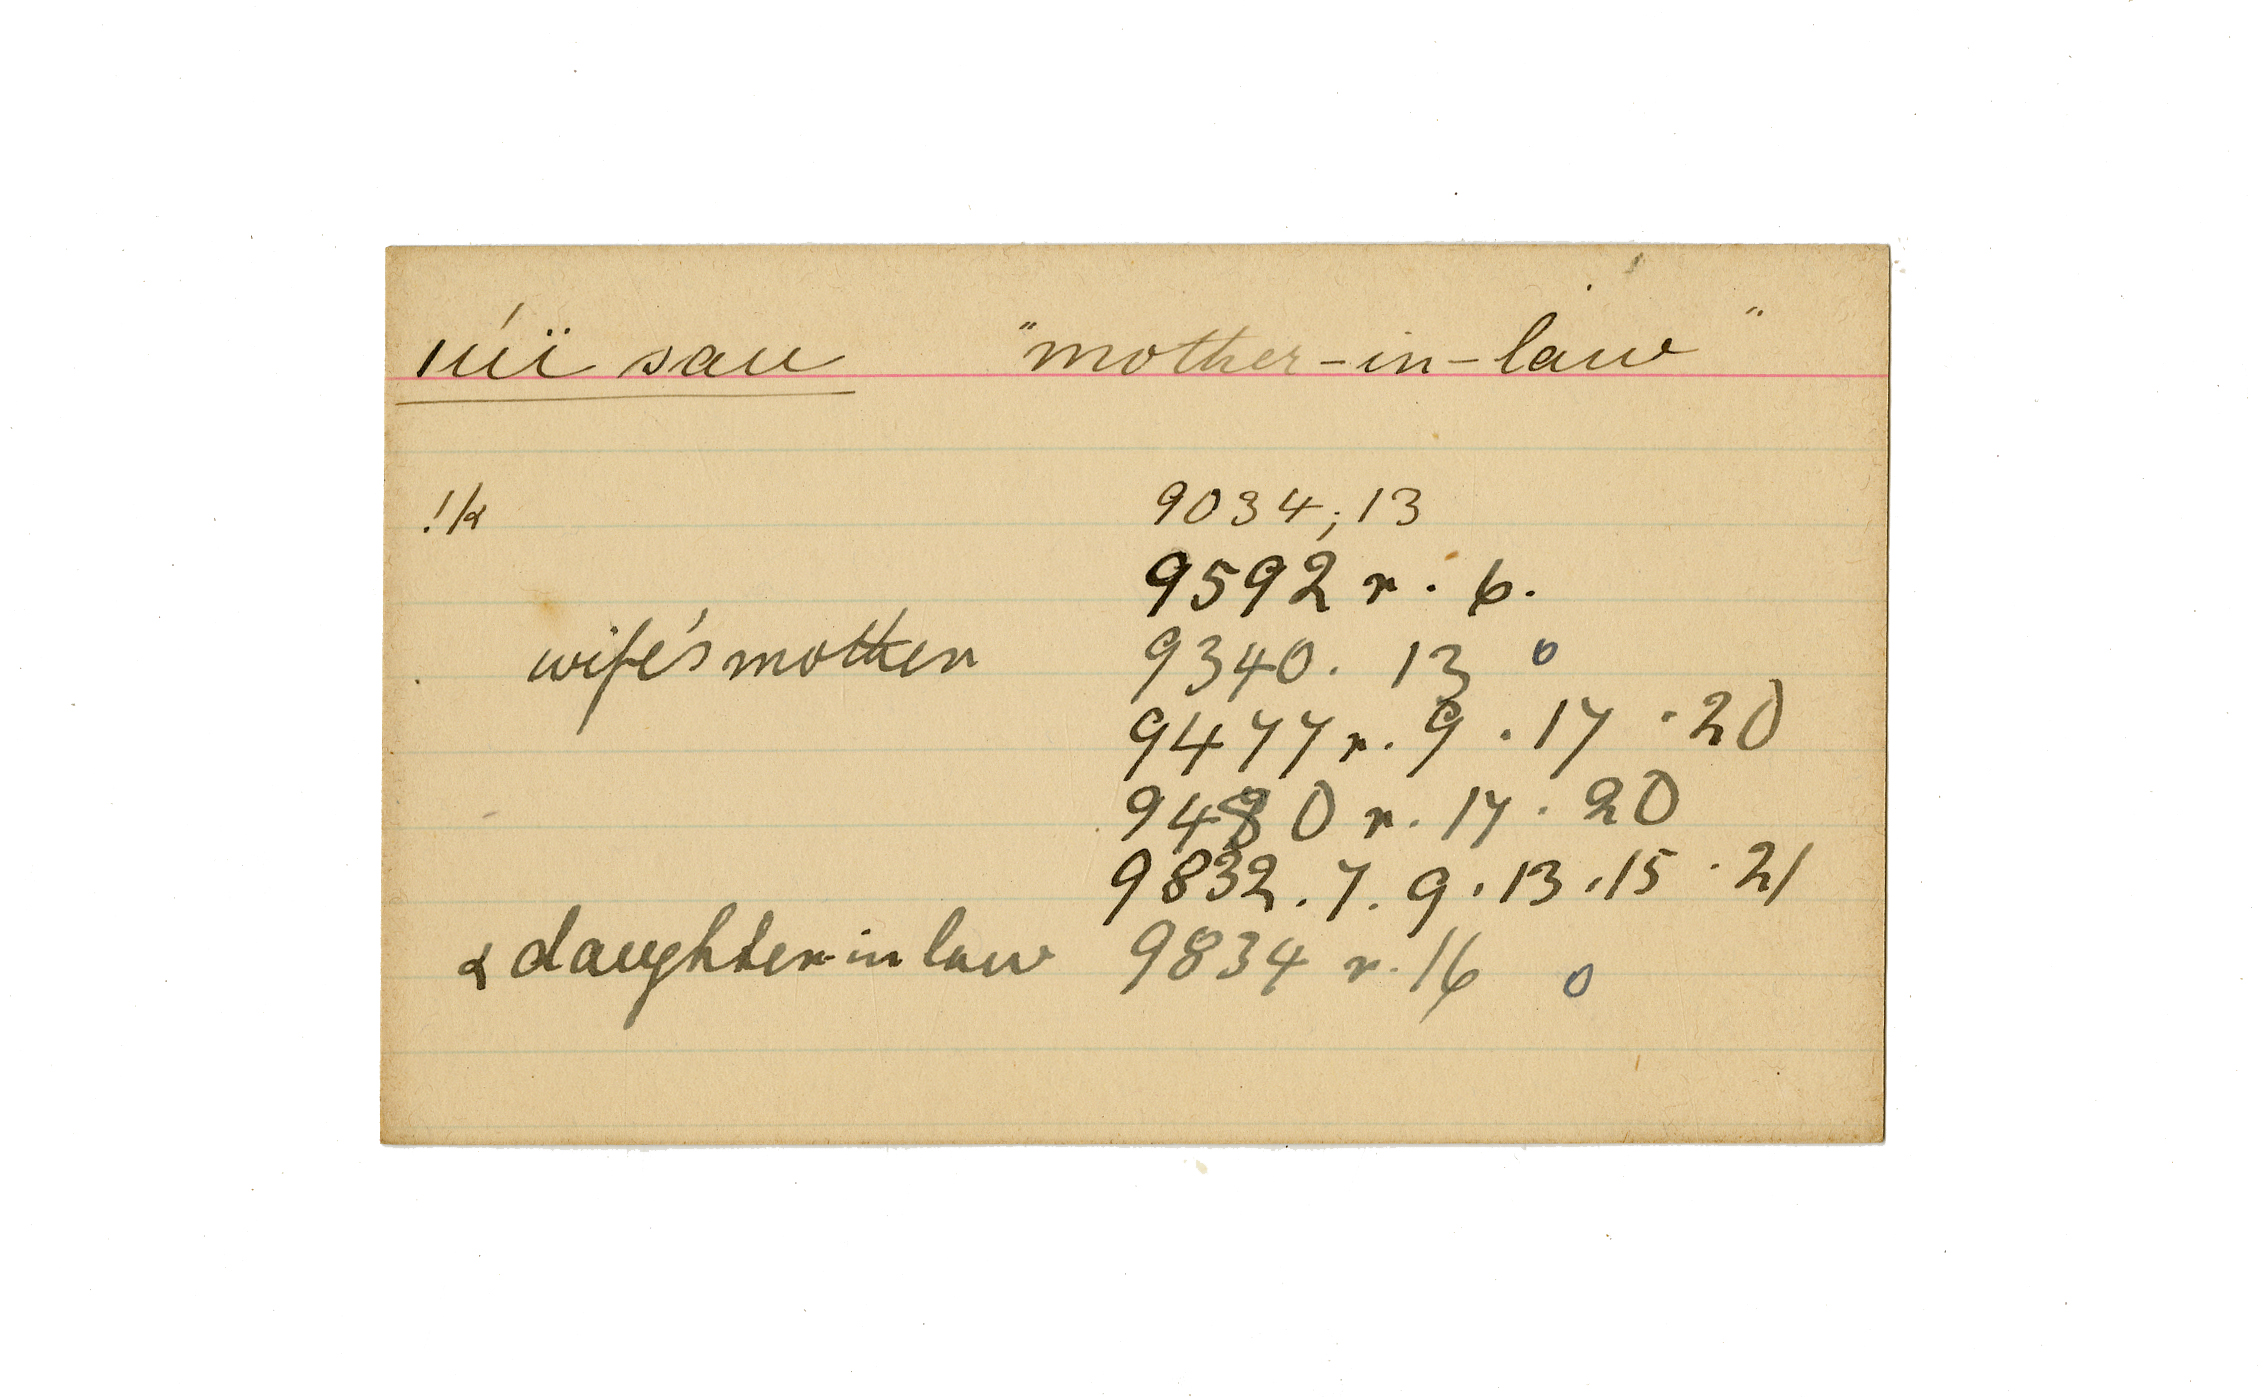 |úï sau "mother-in-law"
!k 9034; 13
9592 r. 6.
wife's mother 9340. 13 o
9477 r. 9 . 17 . 20
9480 r. 17 . 20
9832. 7. 9. 13. 15 . 21
& daughter-in law 9834 r. 16 o